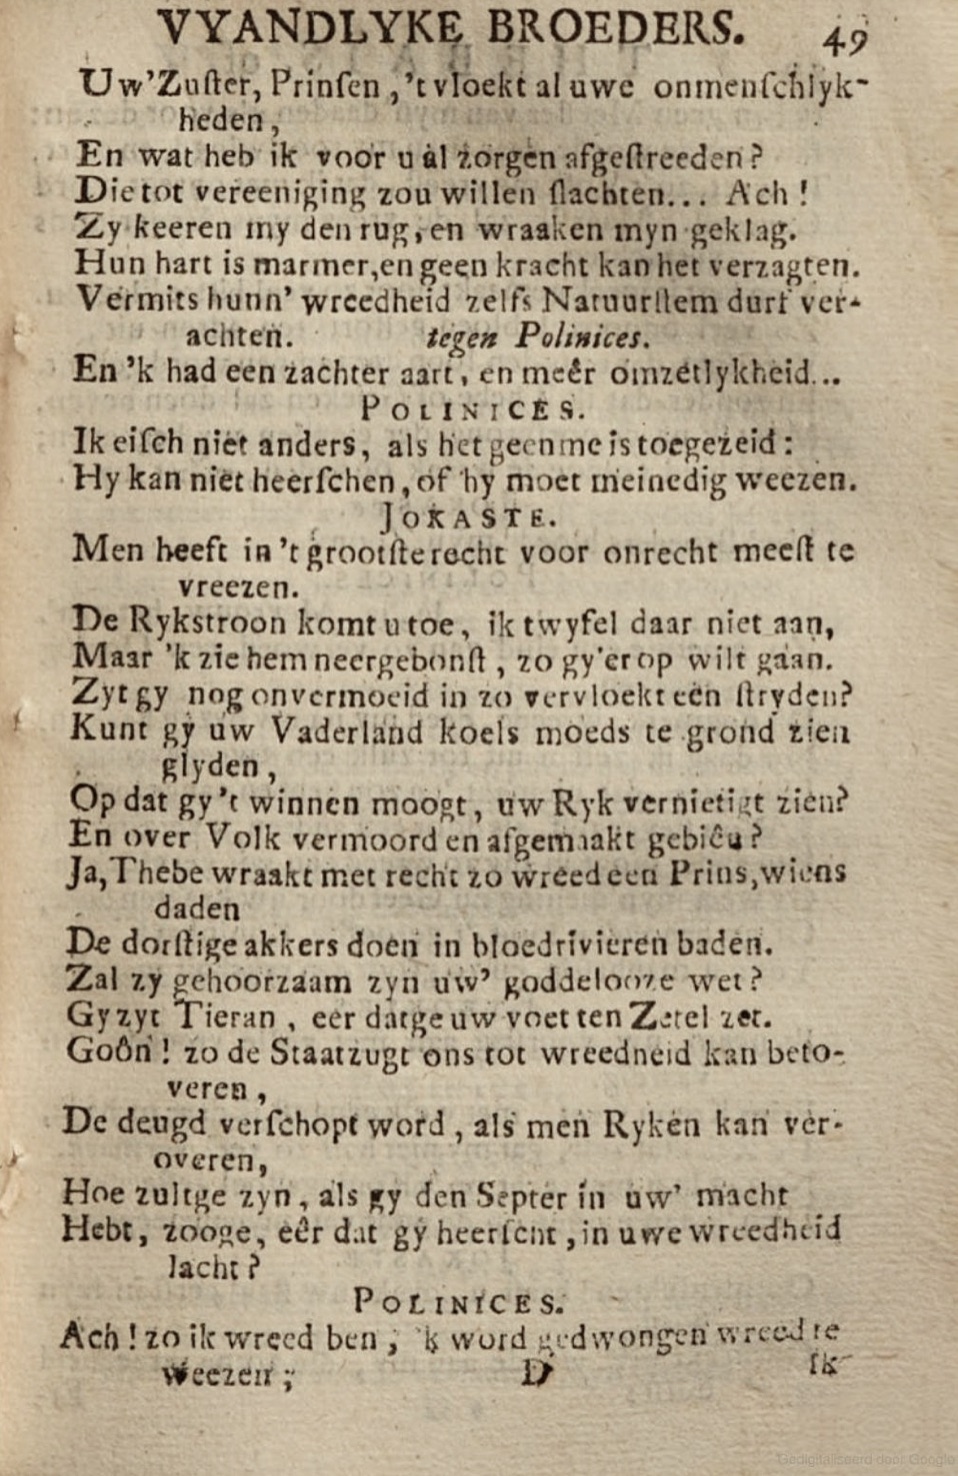 VYANDLYKE BROEDERS. 49
Uw' Zuſter, Prinſen, 't vloekt al uwe onmenſchlyk-
heden,
En wat heb ik voor u al zorgen afgeſtreeden?
Die tot vereeniging zou willen ſlachten... Ach!
Zy keeren my den rug, en wraaken myn geklag.
Hun hart is marmer, en geen kracht kan het verzagten.
Vermits hunn' wreedheid zelfs Natuurſtem durf ver-
achten. tegen Polinices.
En 'k had een zachter aart, en meêr omzetlykheid...
POLINICES.
Ik eiſch niet anders, als het geen me is toegezeid:
Hy kan niet heerſchen, of hy moet meinedig weezen.
JOKASTE.
Men heeft in 't grootſte recht voor onrecht meeſt te
vreezen.
De Rykstroon komt u toe, ik twyfel daar niet aan,
Maar 'k zie hem neergebonſt, zo gy'er op wilt gaan.
Zyt gy nog onvermoeid in zo vervloekt een ſtryden?
Kunt gy uw Vaderland koels moeds te grond zien
glyden,
Op dat gy 't winnen moogt, uw Ryk vernietigt zien?
En over Volk vermoord en afgemaakt gebiên?
Ja, Thebe wraakt met recht zo wreed een Prins, wiens
daden
De dorſtige akkers doen in bloedrivieren baden.
Zal zy gehoorzaam zyn uw' goddelooze wet?
Gy zyt Tieran, eer datge uw voet ten Zetel zet.
Goôn! zo de Staatzugt ons tot wreedheid kan beto-
veren,
De deugd verſchopt word, als men Ryken kan ver-
overen,
Hoe zultge zyn, als gy den Septer in uw' macht
Hebt, zooge, eêr dat gy heerſcht, in uwe wreedheid
lacht?
POLINICES.
Ach! zo ik wreed ben, 'k word gedwongen wreed te
weezen;
D Ik
Gedigitaliseerd door Google